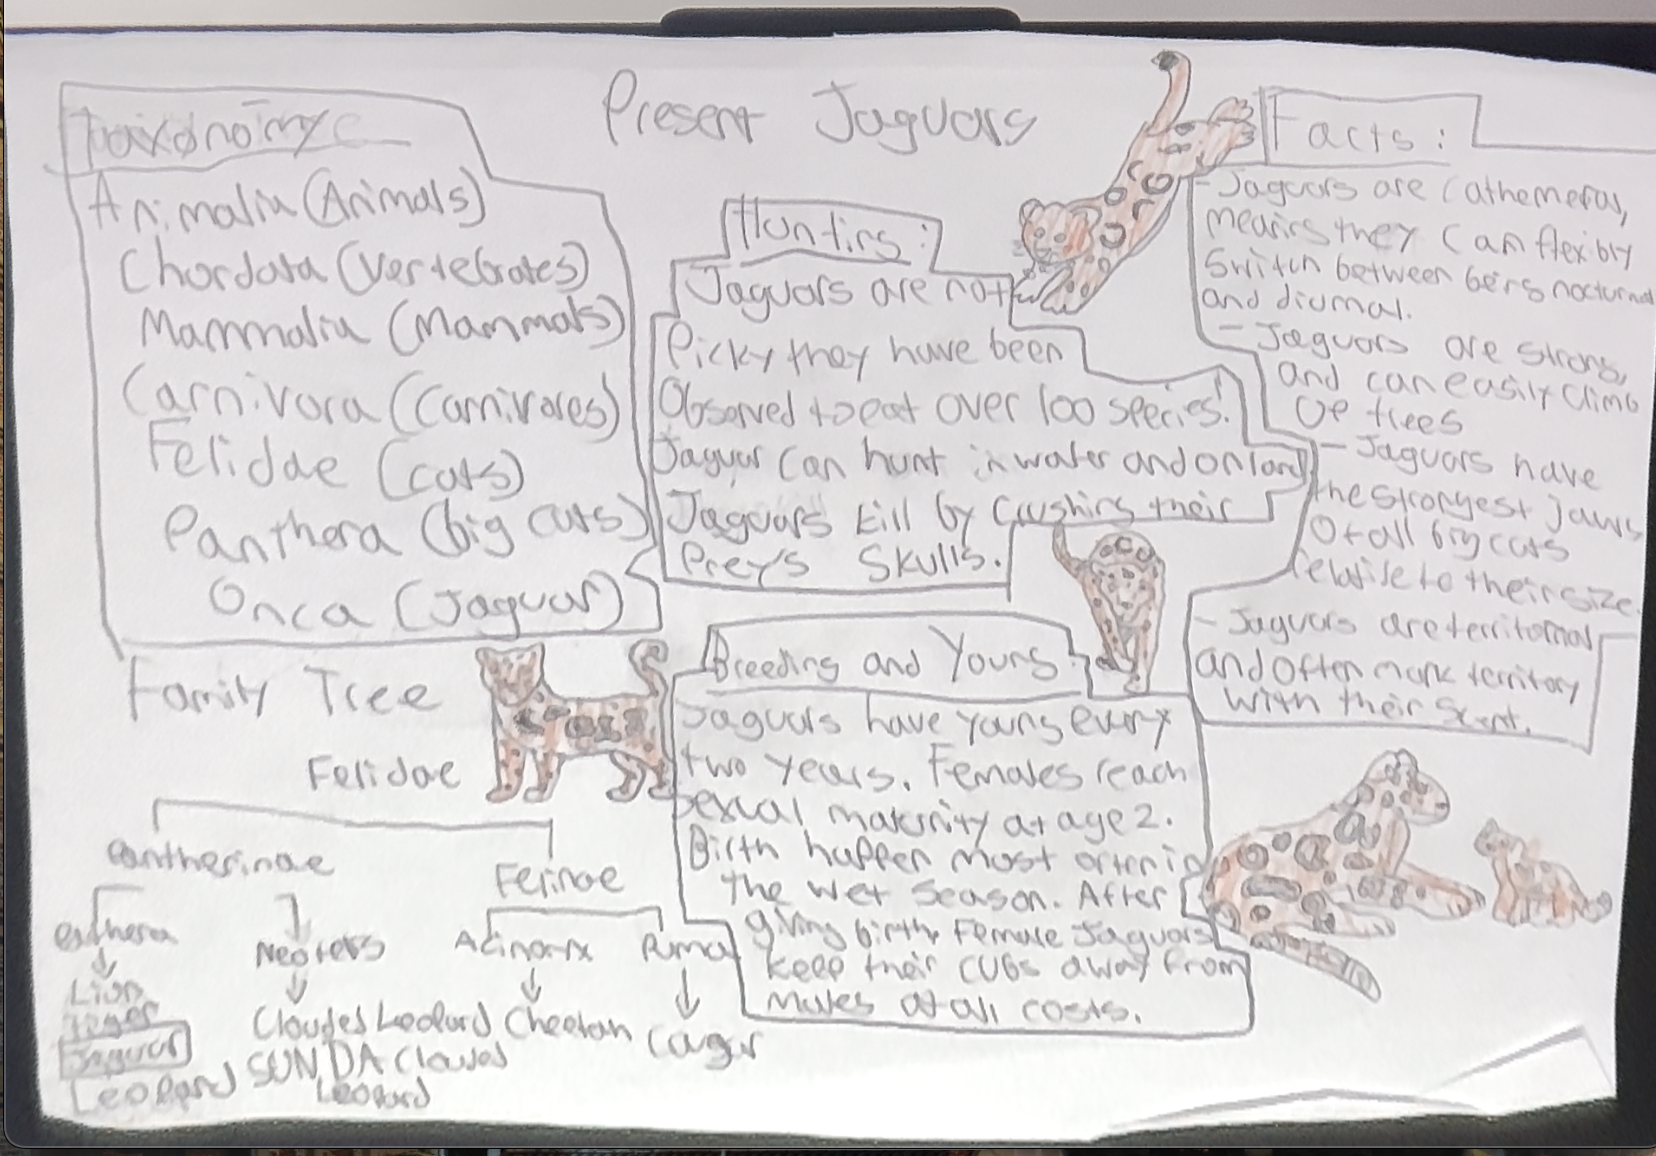 Present Jaguars
Taxonomy
Animalia (Animals)
Chordata (Vertebrates)
Mammalia (Mammals)
Carnivora (Carnivores)
Felidae (cats)
Panthera (big cats)
Onca (Jaguar)
Hunting:
Jaguars are not
Picky they have been
Observed to eat over 100 species!
Jaguar can hunt in water and on land
Jaguars kill by crushing their
Preys Skulls.
Facts:
- Jaguars are Cathemeral,
means they can flexibly
Switch between being nocturnal
and diurnal.
- Jaguars are strong,
and can easily climb
up trees
- Jaguars have
the strongest jaws
Of all big cats
relative to their size.
- Jaguars are territorial
and often mark territory
with their scent.
Breeding and Young:
Jaguars have young every
two years. Females reach
sexual maturity at age 2.
Birth happen most often in
the wet season. After
giving birth, Female Jaguars
keep their cubs away from
males at all costs.
Family Tree
Felidae
Pantherinae
Felinae
Panthera
Neofelis
Acinonyx
Puma
Lion
Tiger
Jaguar
Leopard
Clouded Leopard
SUNDA Clouded
Leopard
Cheetah